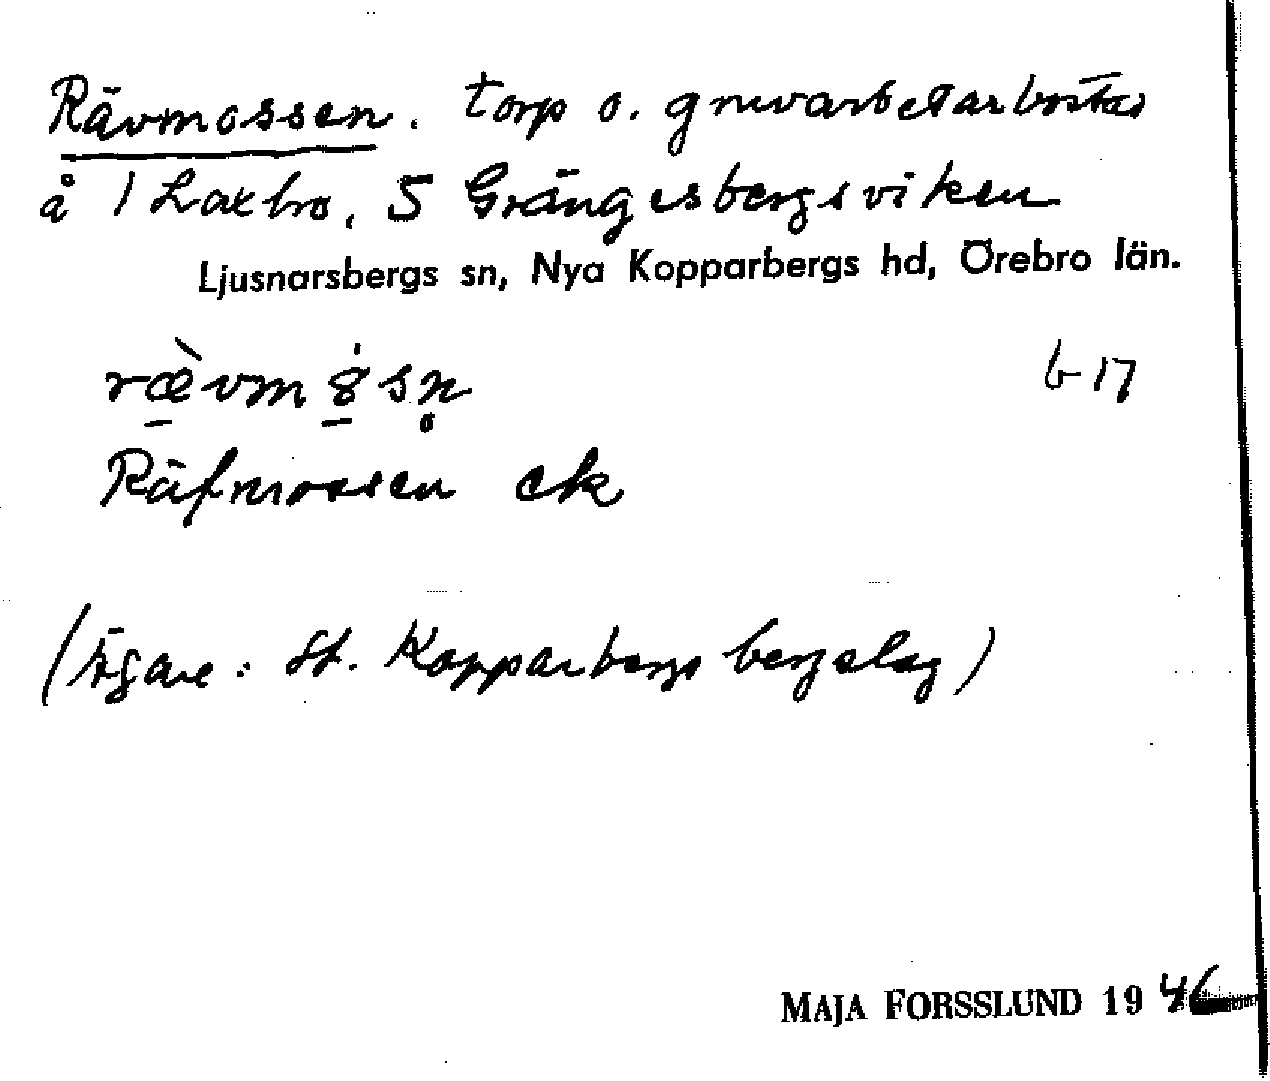 Rävmossen. torp o. gruvarbetarbostäder
å 1 Laxbro, S Grängesbergsviken
Ljusnarsbergs sn, Nya Kopparbergs hd, Örebro län.
ræ̀vm 8̇ sn̥ b 17
Räfmossen ek
(Ägare: St. Kopparbergs bergslag)
MAJA FORSSLUND 1946